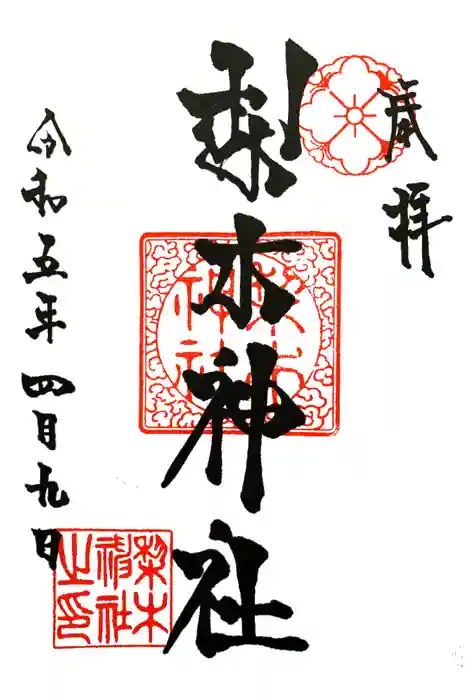 奉拝
梨木神社
令和五年四月九日
梨木
神社
之印